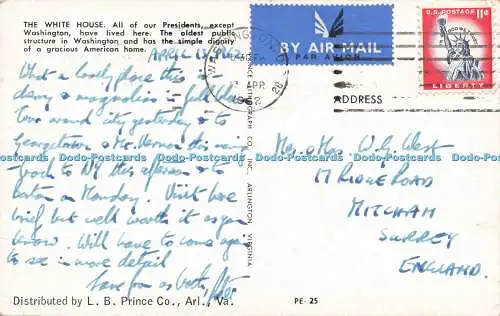 THE WHITE HOUSE. All of our Presidents, except
Washington, have lived here. The oldest public
structure in Washington and has the simple dignity
of a gracious American home.
APRIL 13 1962
What a lovely place this
cherry & magnolias in full bloom
Tour round city yesterday & to
Georgetown & Mt. Vernon this morning
back to NY this afternoon & to
Boston on Monday. Visit here
brief but well worth it as you
know. Will have to come again
to see in more detail
Love from us both,
Distributed by L. B. Prince Co., Arl., Va.
LITHOGRAPH CO., INC. ARLINGTON, VIRGINIA
WASHINGTON, D.C.
APR
1962
28
BY AIR MAIL
PAR AVION
U.S. POSTAGE 11¢
IN GOD WE TRUST
LIBERTY
ADDRESS
Mr. & Mrs W. G. West
17 RIDGE ROAD
MITCHAM
SURREY
ENGLAND.
PE-25
Dodo-Postcards Dodo-Postcards Dodo-Postcards Dodo-Postcards Dodo-Postcards Dodo-Postcards